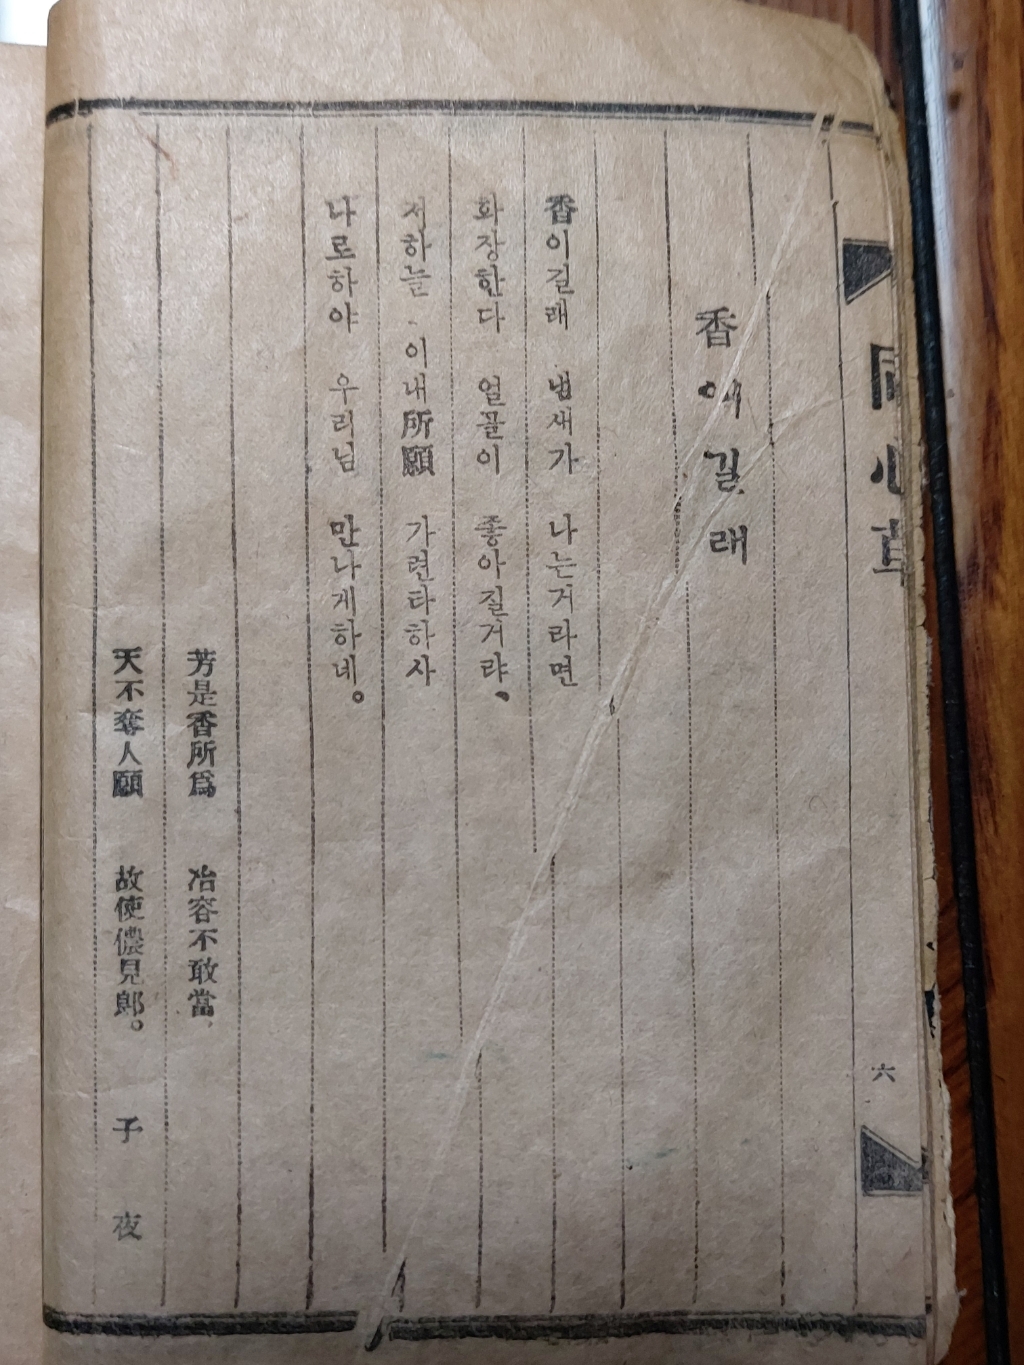 同心草
六
香이길래
香이길래 냄새가 나는거라면
화장한다 얼골이 좋아질거랴、
저하늘 이내所願 가련타하사
나로하야 우리님 만나게하네。
芳是香所爲 冶容不敢當、
天不奪人願 故使儂見郎。 子夜